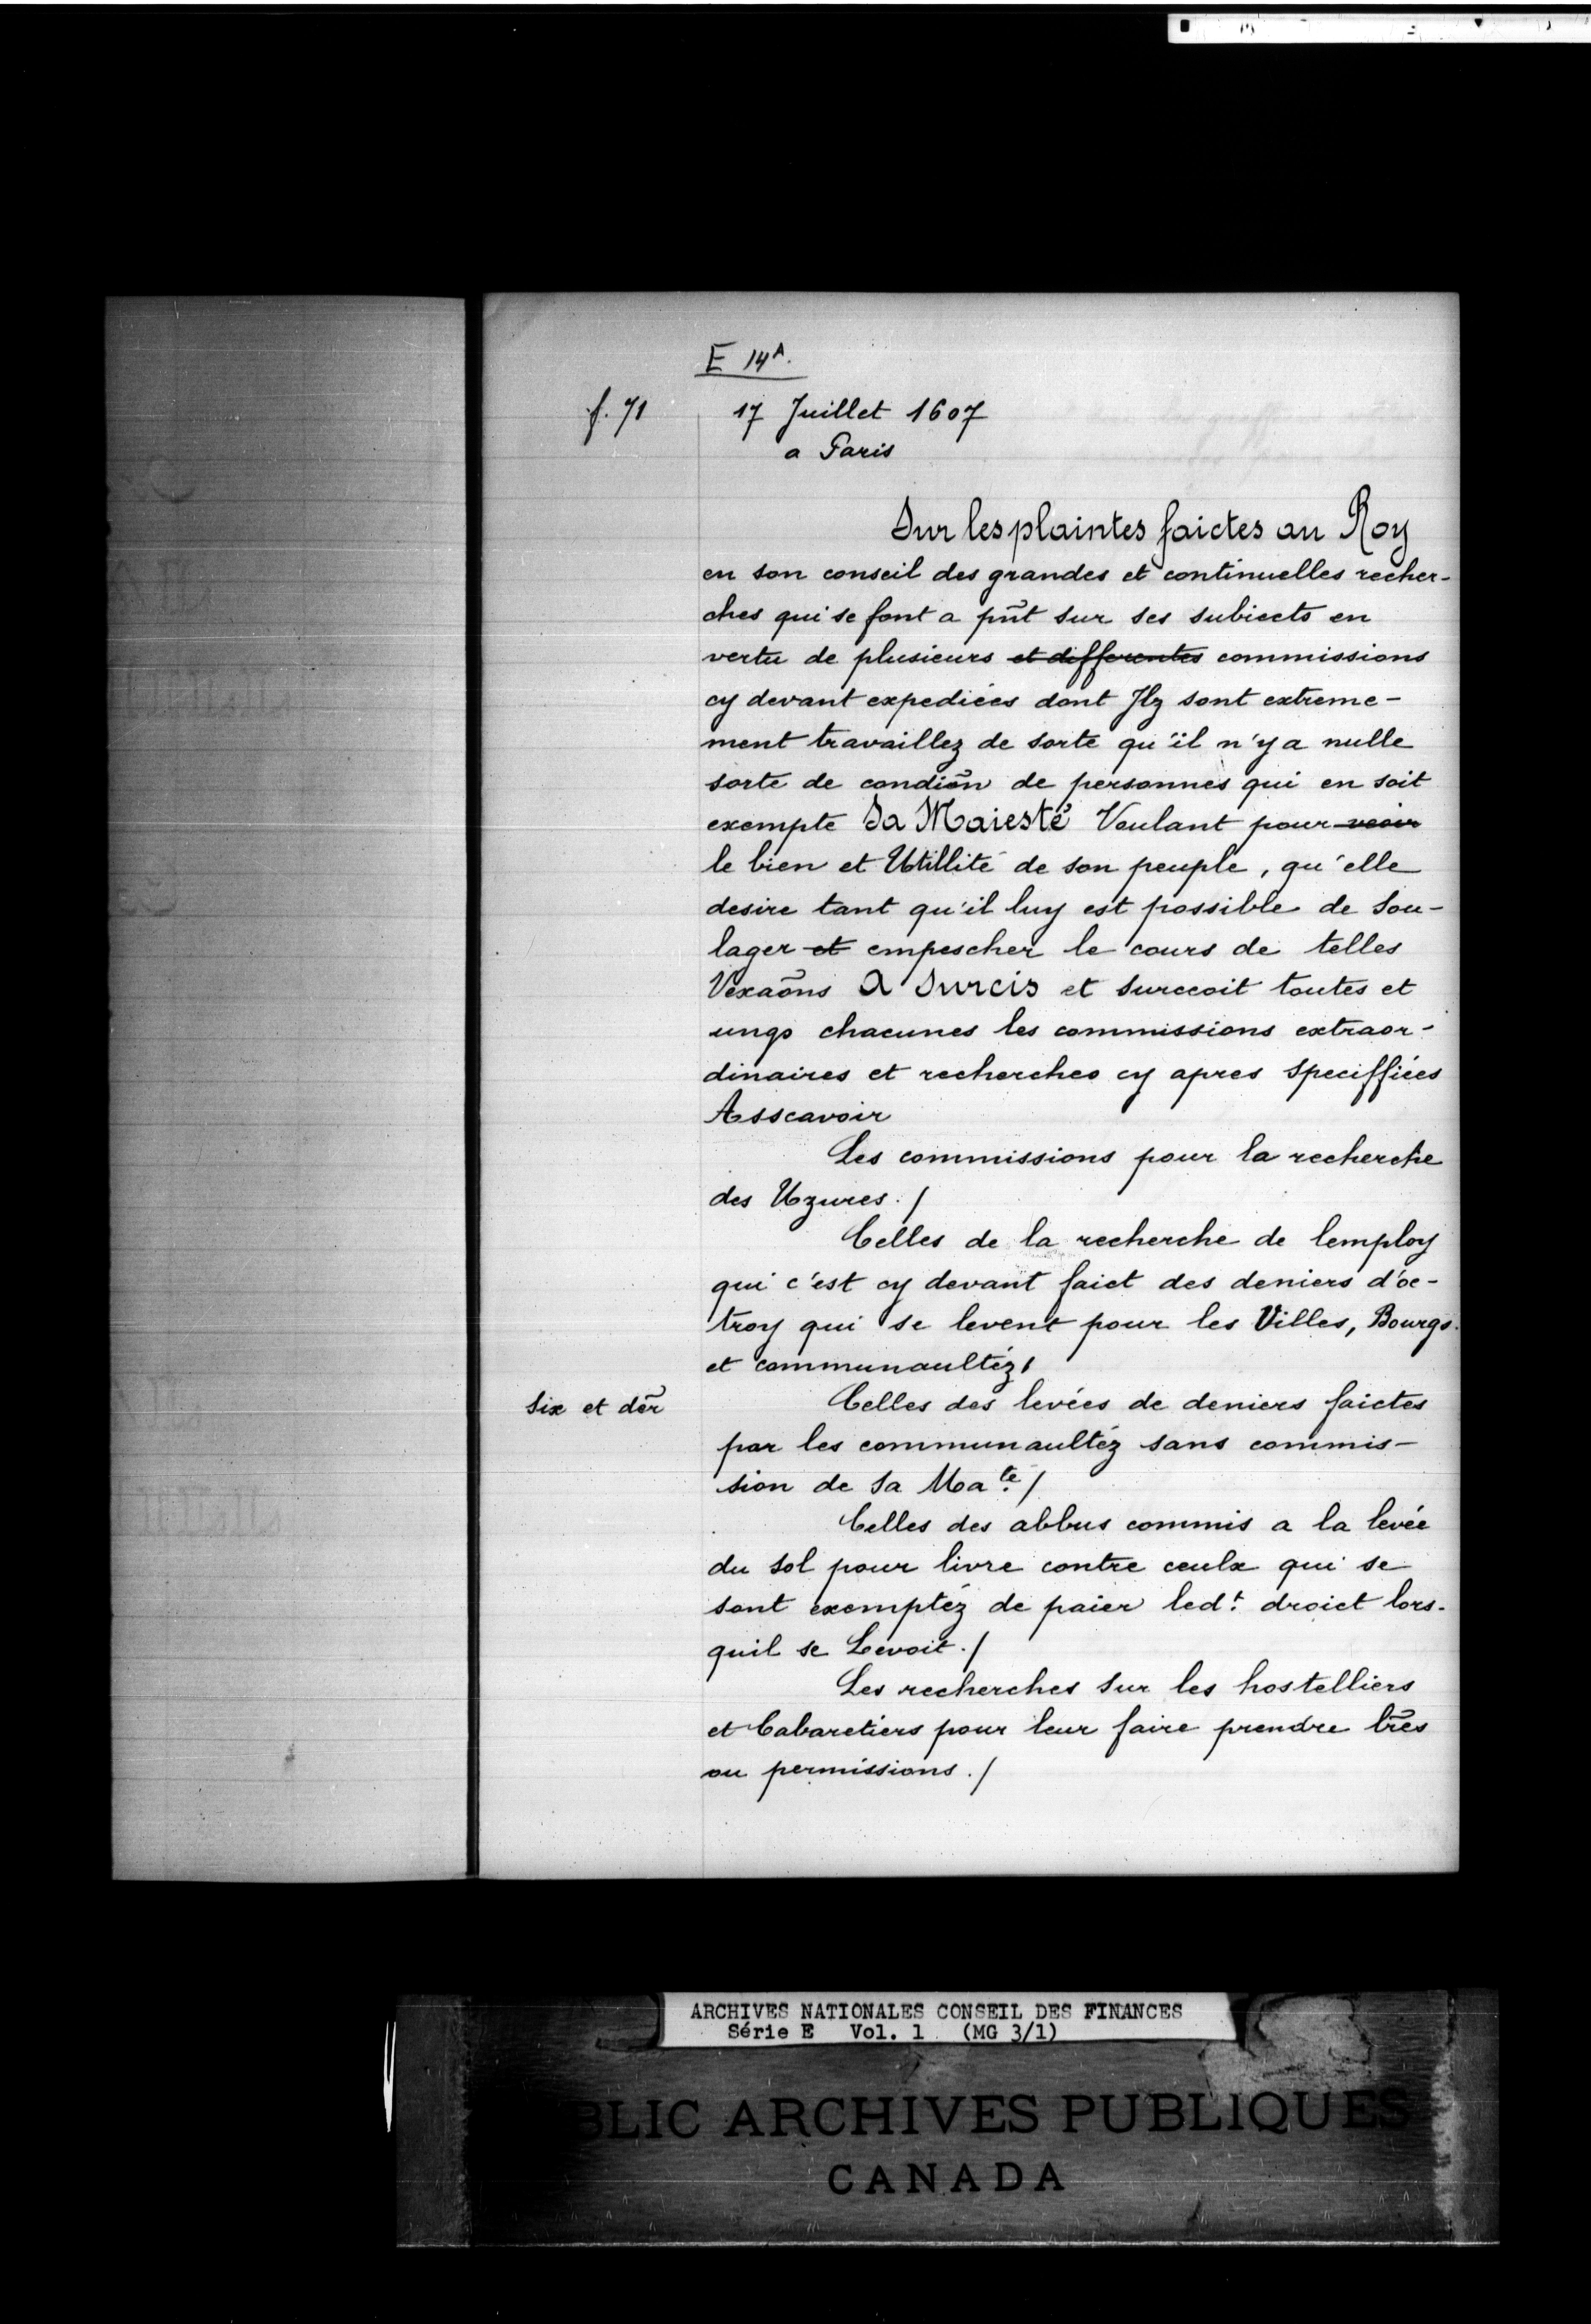 E 14A.
f. 71
17 Juillet 1607
a Paris
Sur les plaintes faictes au Roy
en son conseil des grandes et continuelles recher-
ches qui se font a pñt sur ses subiects en
vertu de plusieurs et differentes commissions
cy devant expediées dont Ilz sont extreme-
ment travaillez de sorte qu'il n'y a nulle
sorte de condiõn de personnes qui en soit
exempte Sa Maiesté Voulant pour veoir
le bien et Utillité de son peuple, qu'elle
desire tant qu'il luy est possible de sou-
lager et empescher le cours de telles
Vexaõns A Surcis et surceoit toutes et
ungs chacunes les commissions extraor-
dinaires et recherches cy apres speciffiées
Asscavoir
Les commissions pour la recherche
des Uzures. /
Celles de la recherche de lemploy
qui c'est cy devant faict des deniers d'oc-
troy qui se levent pour les Villes, Bourgs.
et communaultéz /
six et dẽr
Celles des levées de deniers faictes
par les communaultéz sans commis-
sion de sa Ma.té /
Celles des abbus commis a la levée
du sol pour livre contre ceulx qui se
sont exemptéz de paier led.t droict lors-
quil se Levoit. /
Les recherches sur les hostelliers
et Cabaretiers pour leur faire prendre lr̃es
ou permissions. /
ARCHIVES NATIONALES CONSEIL DES FINANCES
Série E Vol. 1 (MG 3/1)
BLIC ARCHIVES PUBLIQUES
CANADA